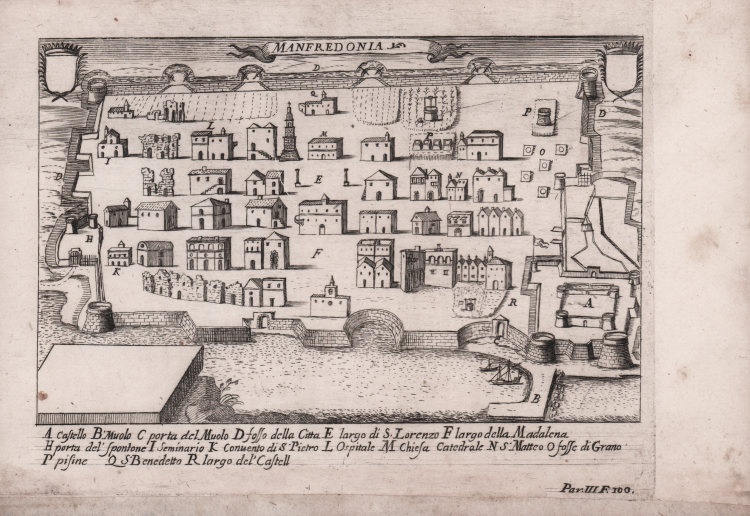 MANFREDONIA
D
Q
I
L
M
P
D
O
E
N
D
H
F
K
R
A
C
B
A Castello B Muolo C porta del Muolo D fosso della Citta E largo di S. Lorenzo F largo della Madalena
H porta del' spontone I Seminario K Conuento di S. Pietro L Ospitale M Chiesa Catedrale N S. Matteo O fosse di Grano
P pisine Q S Benedetto R largo del' Castell
Par. III F. 100.